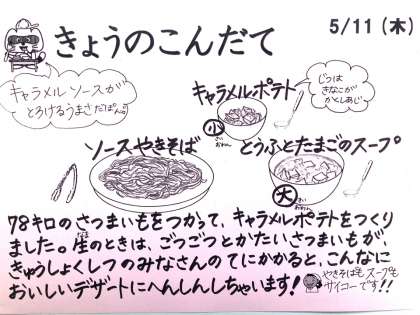 きょうのこんだて
5/11 (木)
キャラメルソースが
とろけるうまさだぽん。
キャラメルポテト
じつは
きなこが
かくしあじ
小
さい
おわん
ソースやきそば
とうふとたまごのスープ
大
きい
おわん
78キロのさつまいもをつかって、キャラメルポテトをつくり
ました。生のときは、ごつごつとかたいさつまいもが、
きゅうしょくしつのみなさんのてにかかると、こんなに
おいしいデザートにへんしんしちゃいます!
やきそばも スープも
サイコーです!!